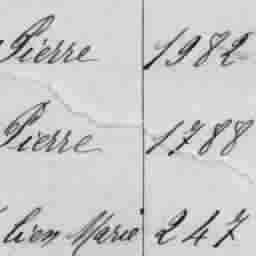 Pierre 1982
Pierre 1788
lien Marie 247